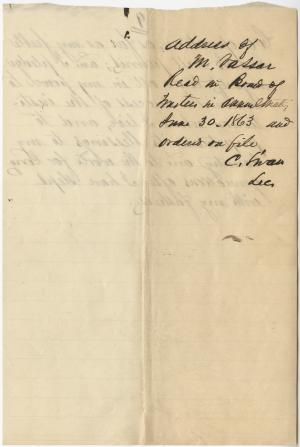 Address of
M. Vassar
Read in Board of
Trustees in annual meet,
June 30. 1863 and
ordered on file
C. Swan
Sec